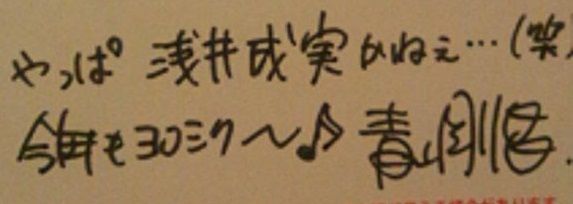 やっぱ 浅井成実かねぇ…(笑)
今年もヨロミク〜♪ 青山剛昌.